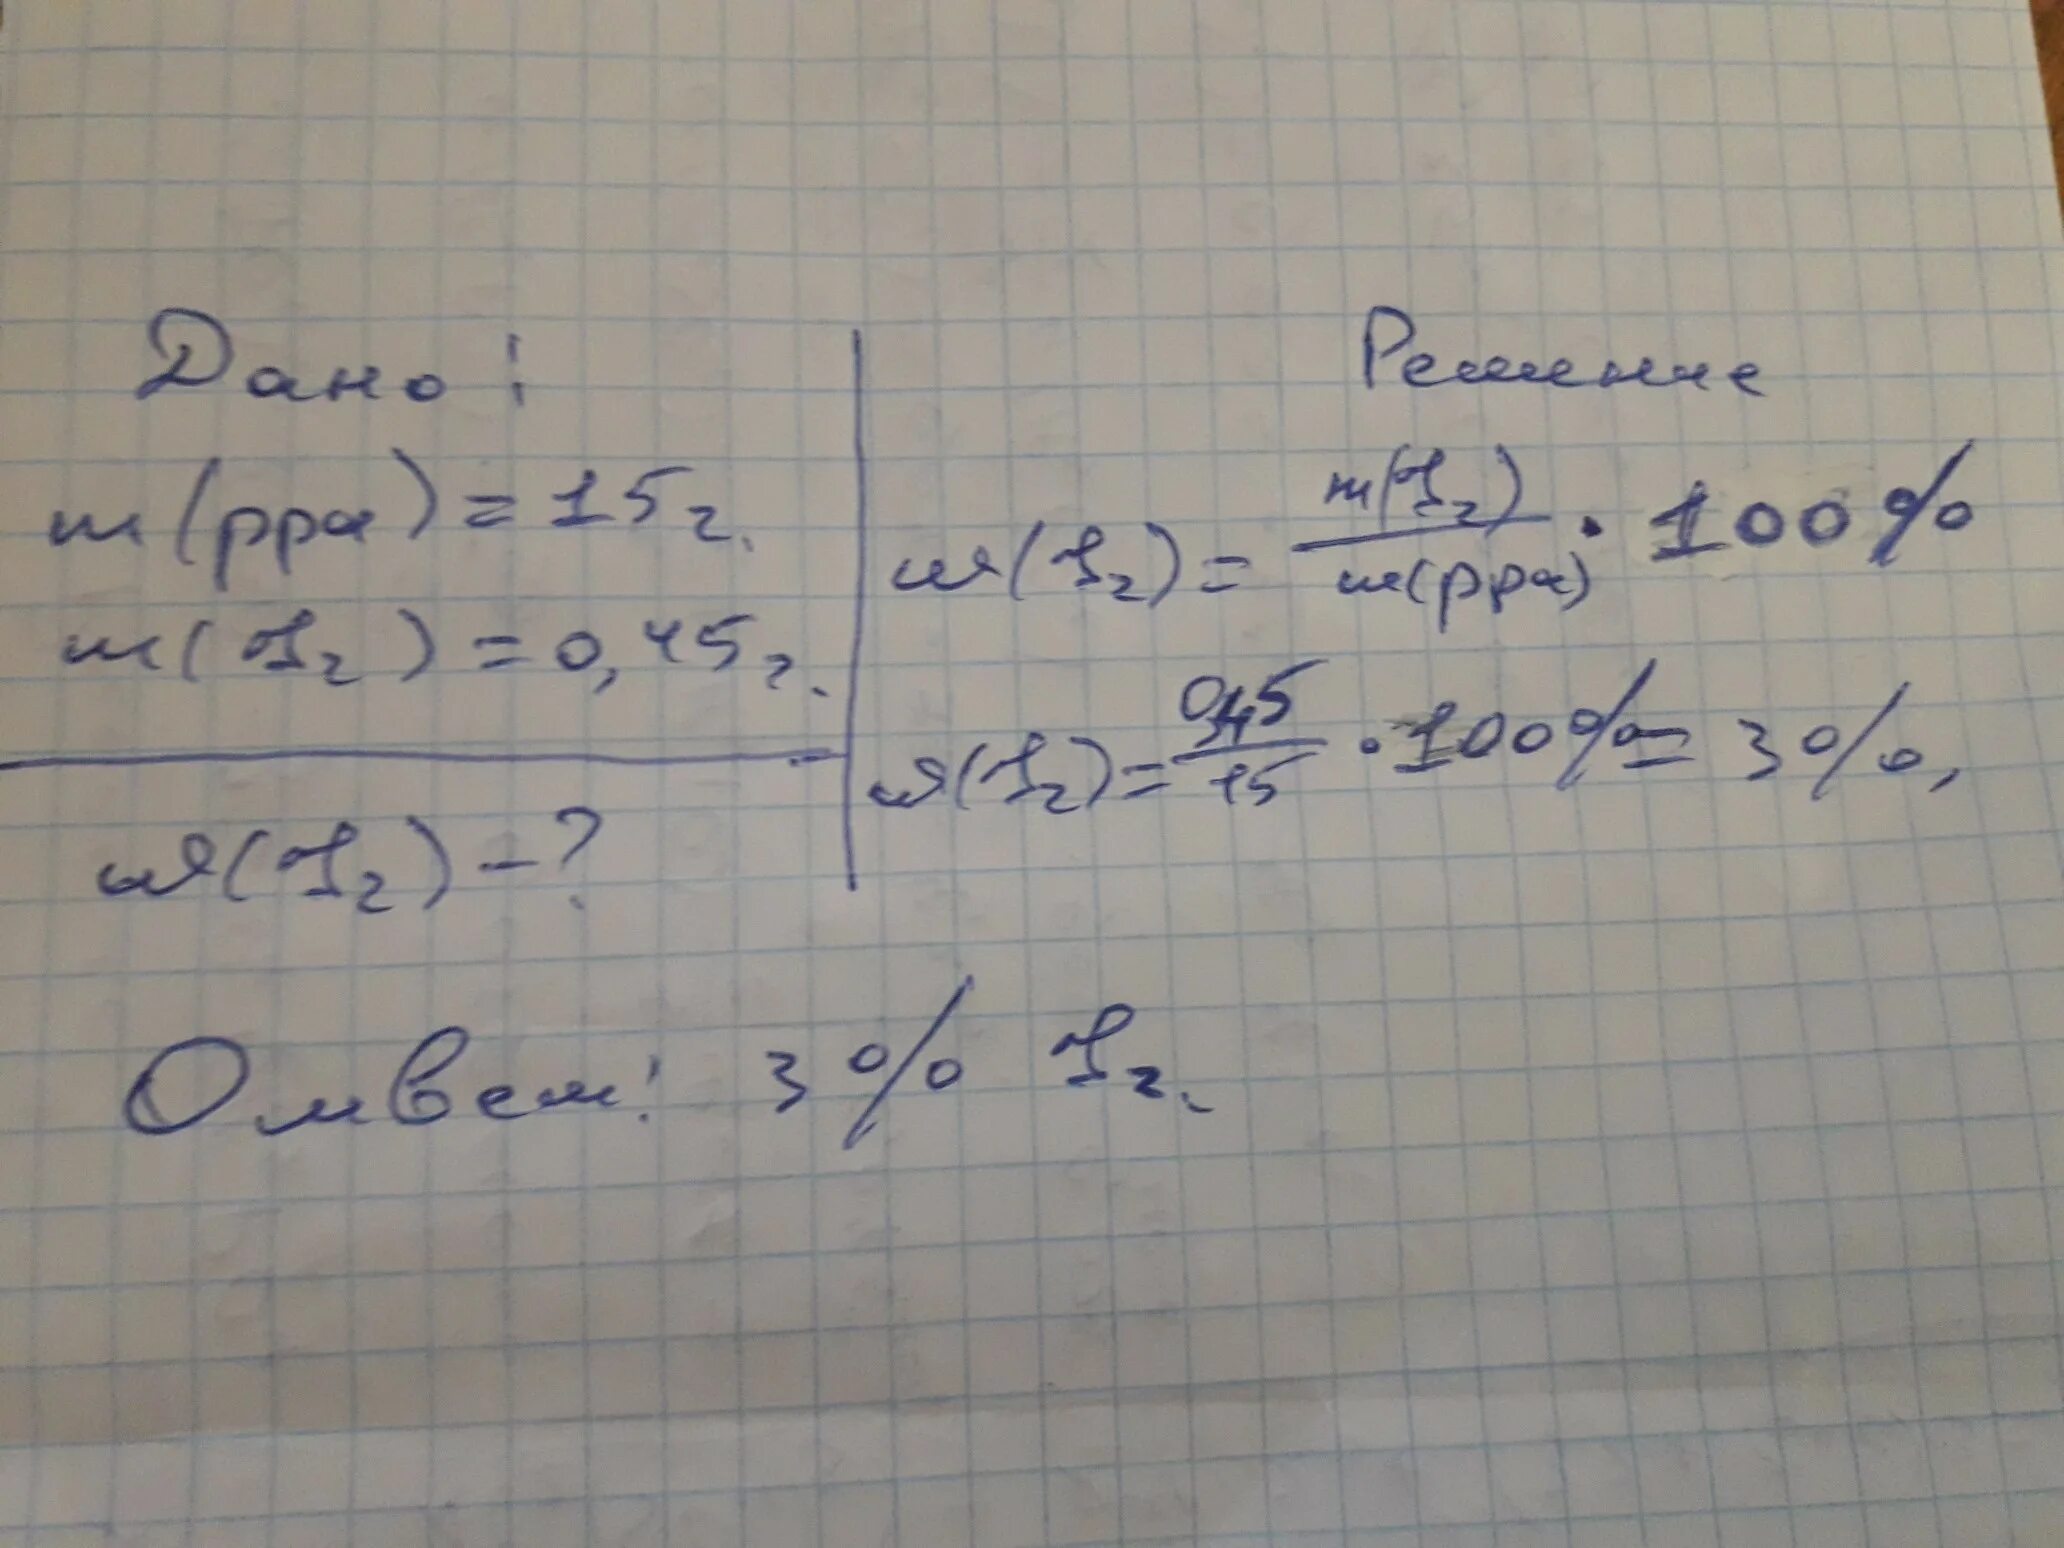 Дано:
m(рра) = 15г.
m(I₂) = 0,45г.
ω(I₂) - ?
Решение
ω(I₂) = m(I₂) / m(рра) · 100%
ω(I₂) = 0,45 / 15 · 100% = 3%.
Ответ: 3% I₂.